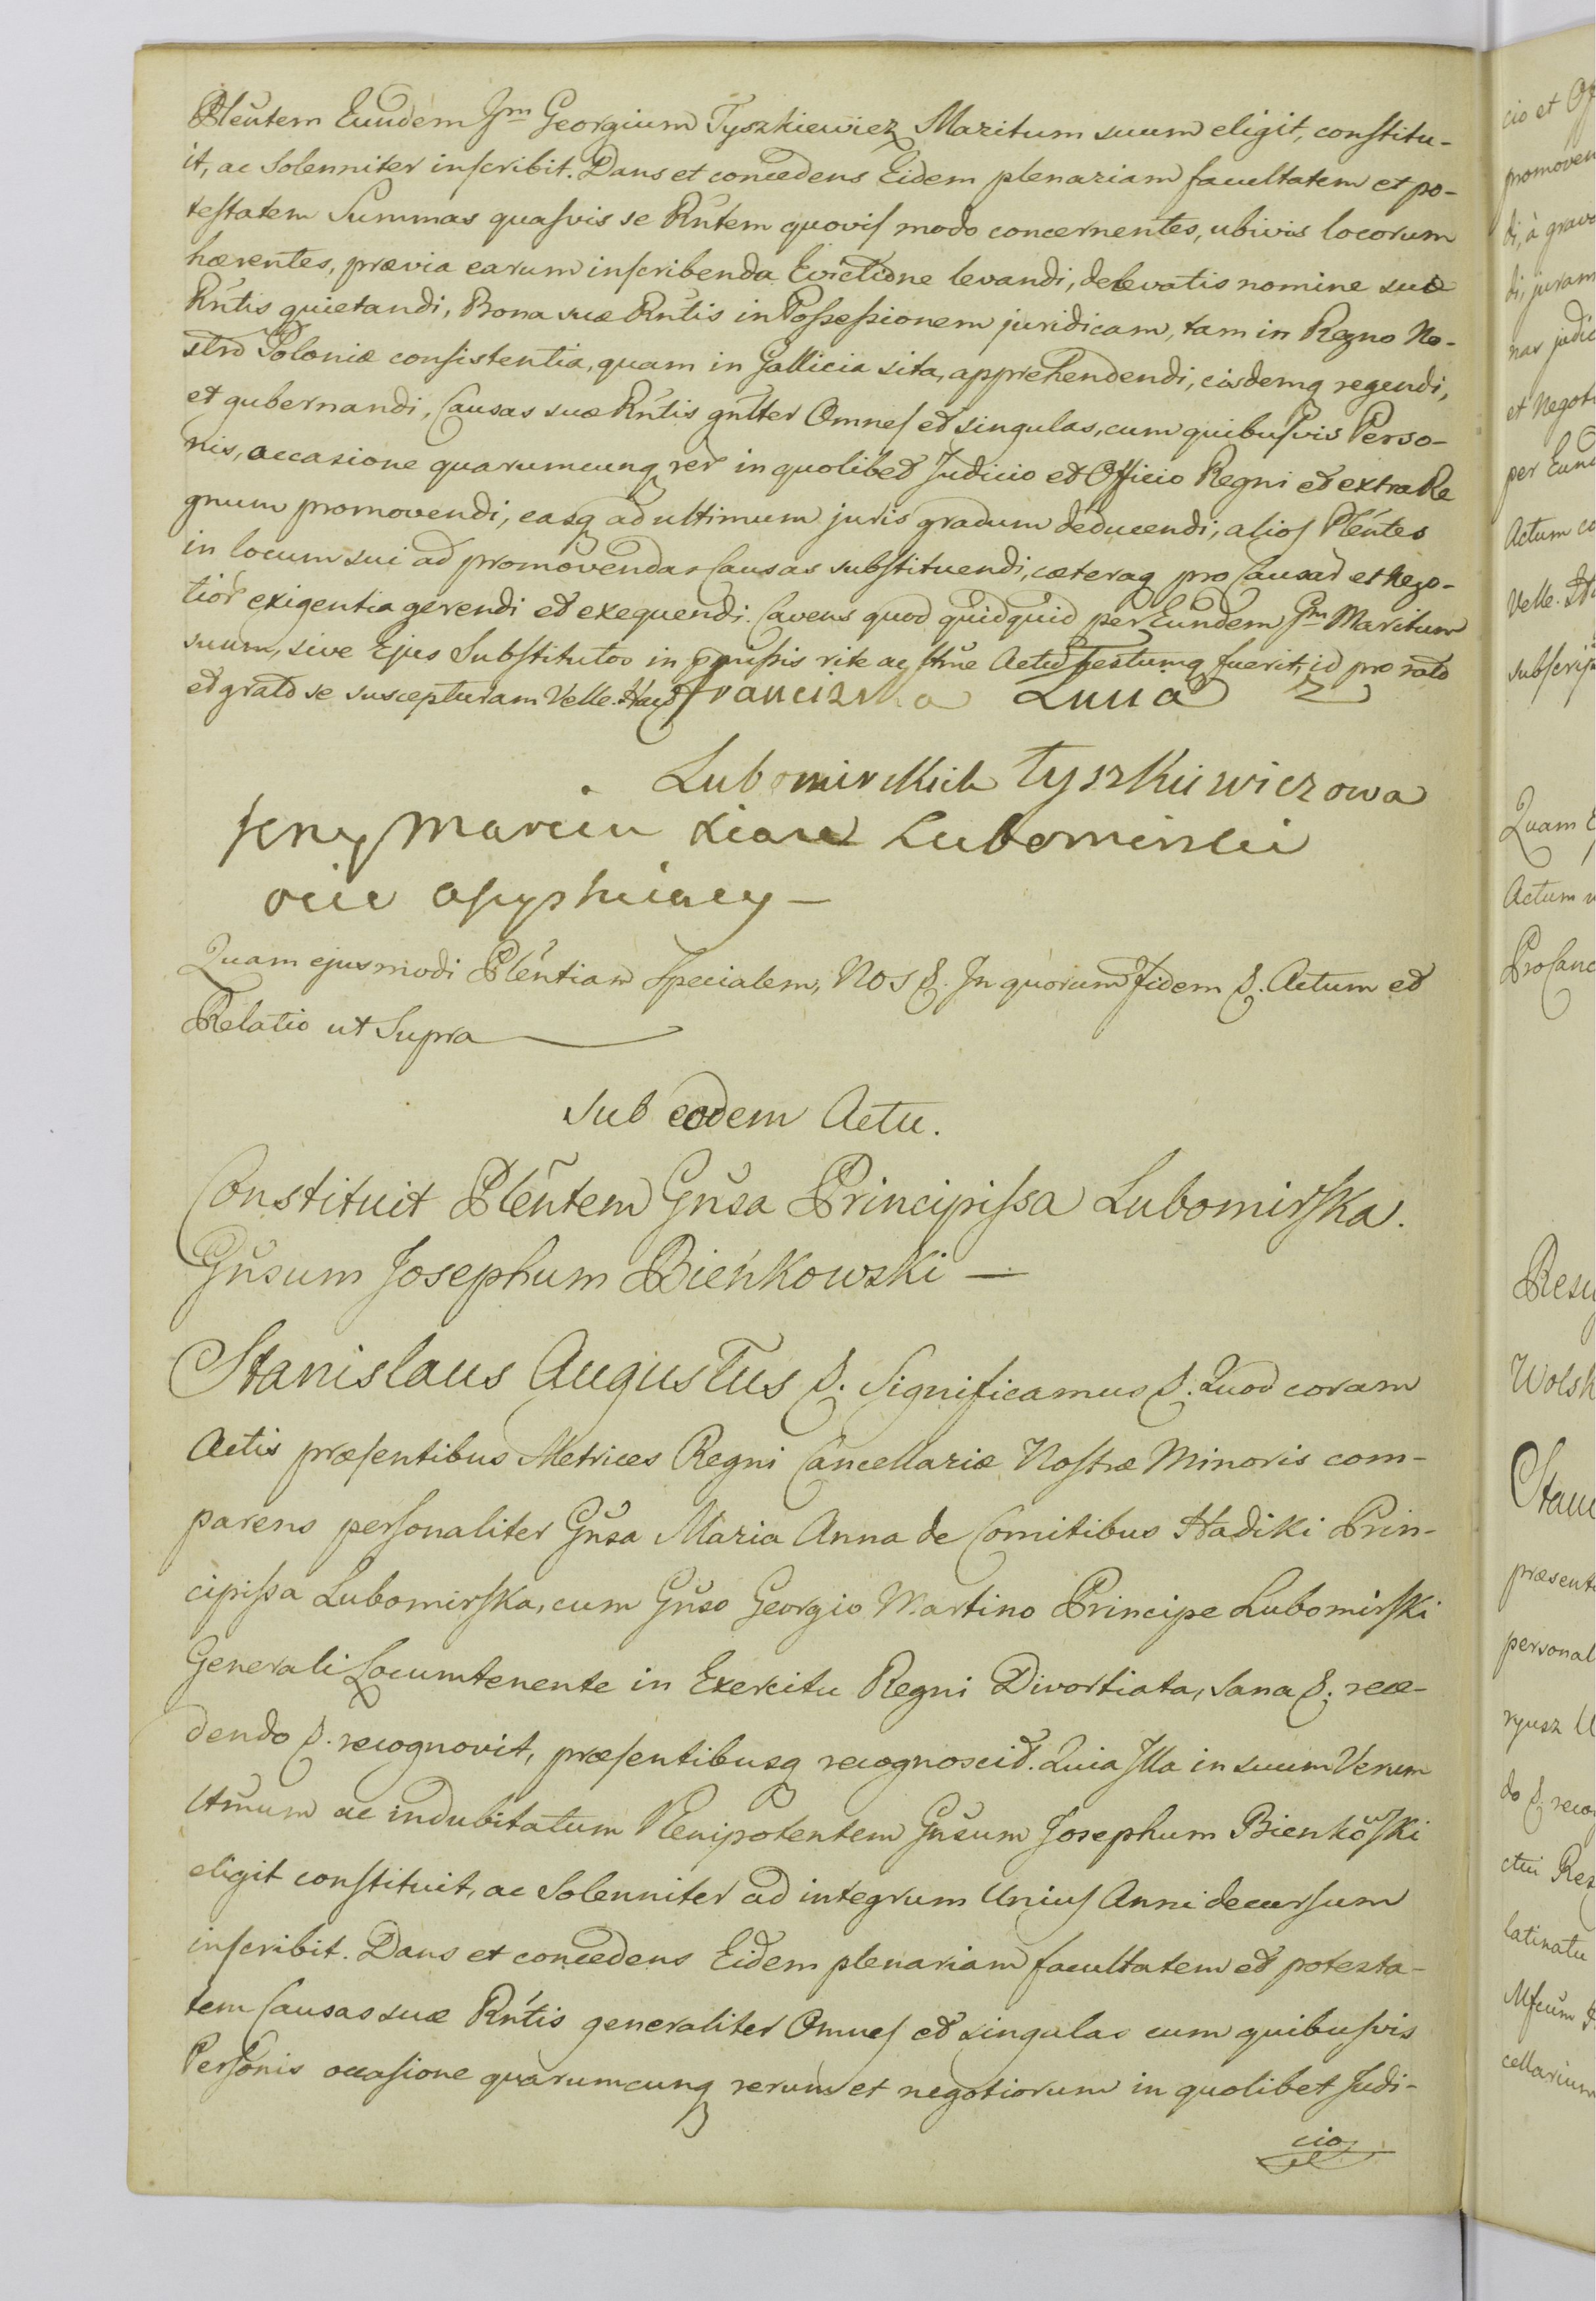 Plentem Eundem Gm Georgium Tyszkiewicz Maritum suum eligit, constitu-
it, ac Solenniter inscribit. Dans et concedens Eidem plenariam facultatem et po-
testatem Summas quasvis se Rntem quovis modo concernentes, ubivis locorum
hærentes, prævia earum inscribenda Evictione levandi, de levatis nomine suæ
Rntis quietandi, Bona suæ Rntis in Possessionem juridicam, tam in Regno No-
stro Poloniæ consistentia, quam in Gallicia sita, apprehendendi, eisdemq regendi,
et gubernandi, Causas suæ Rntis gnlter Omnes et singulas, cum quibusvis Perso-
nis, occasione quarumcunq rer in quolibet Judicio et Officio Regni et extra Re
gnum promovendi, easq ad ultimum juris gradum deducendi, alios Plentes
in locum sui ad promovendas Causas substituendi, cæteraq pro Causar et Nego-
tior exigentia gerendi et exequendi. Cavens quod quidquid per Eundem Gm Maritum
suum, sive Ejus Substitutos in pmissis rite ac Actum Gestumq fuerit, id pro rato
et grato se suscepturam Velle. Franciszka Anna z
Lubomirskich Tyszkiewiczowa
Jerzy Marcin Xiaze Lubomirski
oiic
Quam ejusmodi Plentiam Specialem, Nos &. In quorum Fidem &. Actum et
Relatio ut Supra
Sub eodem Actu.
Constituit Plentem Gnsa Principissa Lubomirska.
Gnsum Josephum Bieńkowski —
Stanislaus Augustus &. Significamus &. Quod coram
Actis præsentibus Metrices Regni Cancellariæ Nostræ Minoris com-
parens personaliter Gnsa Maria Anna de Comitibus Hadiki Prin-
cipissa Lubomirska, cum Gnso Georgio Martino Principe Lubomirski
Generali Locumtenente in Exercitu Regni Divortiata, sana &. rece-
dendo &. recognovit, præsentibusq recognoscit. Quia Illa in suum Verum
Ltmum ac indubitatum Plenipotentem Gnsum Josephum Bienkowski
eligit constituit, ac Solenniter ad integrum Unius Anni decursum
inscribit. Dans et concedens Eidem plenariam facultatem et potesta-
tem Causas suæ Rntis generaliter Omnes et singulas cum quibusvis
Personis occasione quarumcunq rerum et negotiorum in quolibet Judi-
cio
cio et
promoven
di, à grava
di, juram
nas judic
et Negoti
per Eund
Actum
Velle.
subscrip
Quam
Actum
Pro
Resig
Wolsk
Stani
præsenti
personal
ryusz
do &. recog
ctui Reg
latinatu
Mfcum
cellarium